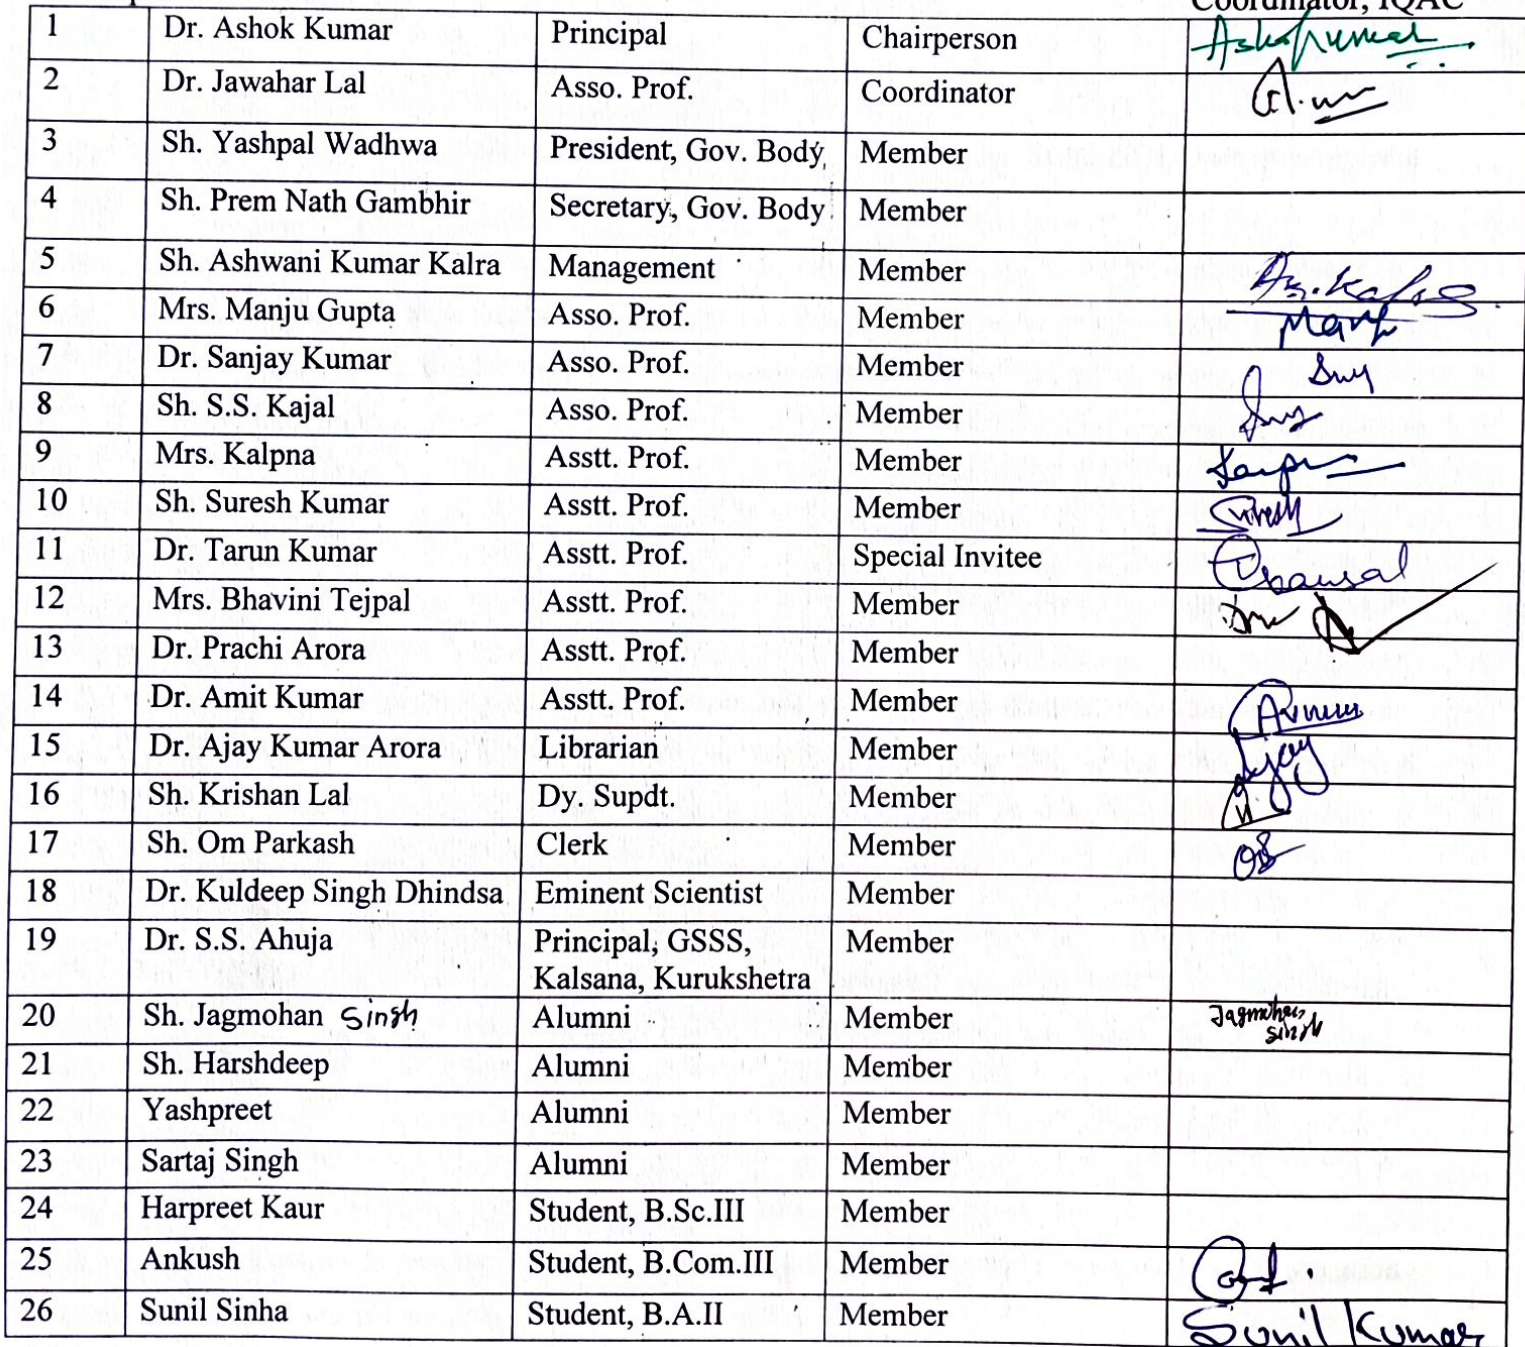 Coordinator, IQAC
1 Dr. Ashok Kumar Principal Chairperson Ashokumar
2 Dr. Jawahar Lal Asso. Prof. Coordinator
3 Sh. Yashpal Wadhwa President, Gov. Body Member
4 Sh. Prem Nath Gambhir Secretary, Gov. Body Member
5 Sh. Ashwani Kumar Kalra Management Member
6 Mrs. Manju Gupta Asso. Prof. Member
7 Dr. Sanjay Kumar Asso. Prof. Member
8 Sh. S.S. Kajal Asso. Prof. Member
9 Mrs. Kalpna Asstt. Prof. Member
10 Sh. Suresh Kumar Asstt. Prof. Member Suresh
11 Dr. Tarun Kumar Asstt. Prof. Special Invitee
12 Mrs. Bhavini Tejpal Asstt. Prof. Member
13 Dr. Prachi Arora Asstt. Prof. Member
14 Dr. Amit Kumar Asstt. Prof. Member
15 Dr. Ajay Kumar Arora Librarian Member Ajay
16 Sh. Krishan Lal Dy. Supdt. Member
17 Sh. Om Parkash Clerk Member
18 Dr. Kuldeep Singh Dhindsa Eminent Scientist Member
19 Dr. S.S. Ahuja Principal, GSSS, Member
Kalsana, Kurukshetra
20 Sh. Jagmohan Singh Alumni Member Jagmohan
Singh
21 Sh. Harshdeep Alumni Member
22 Yashpreet Alumni Member
23 Sartaj Singh Alumni Member
24 Harpreet Kaur Student, B.Sc.III Member
25 Ankush Student, B.Com.III Member
26 Sunil Sinha Student, B.A.II Member Sunil Kumar